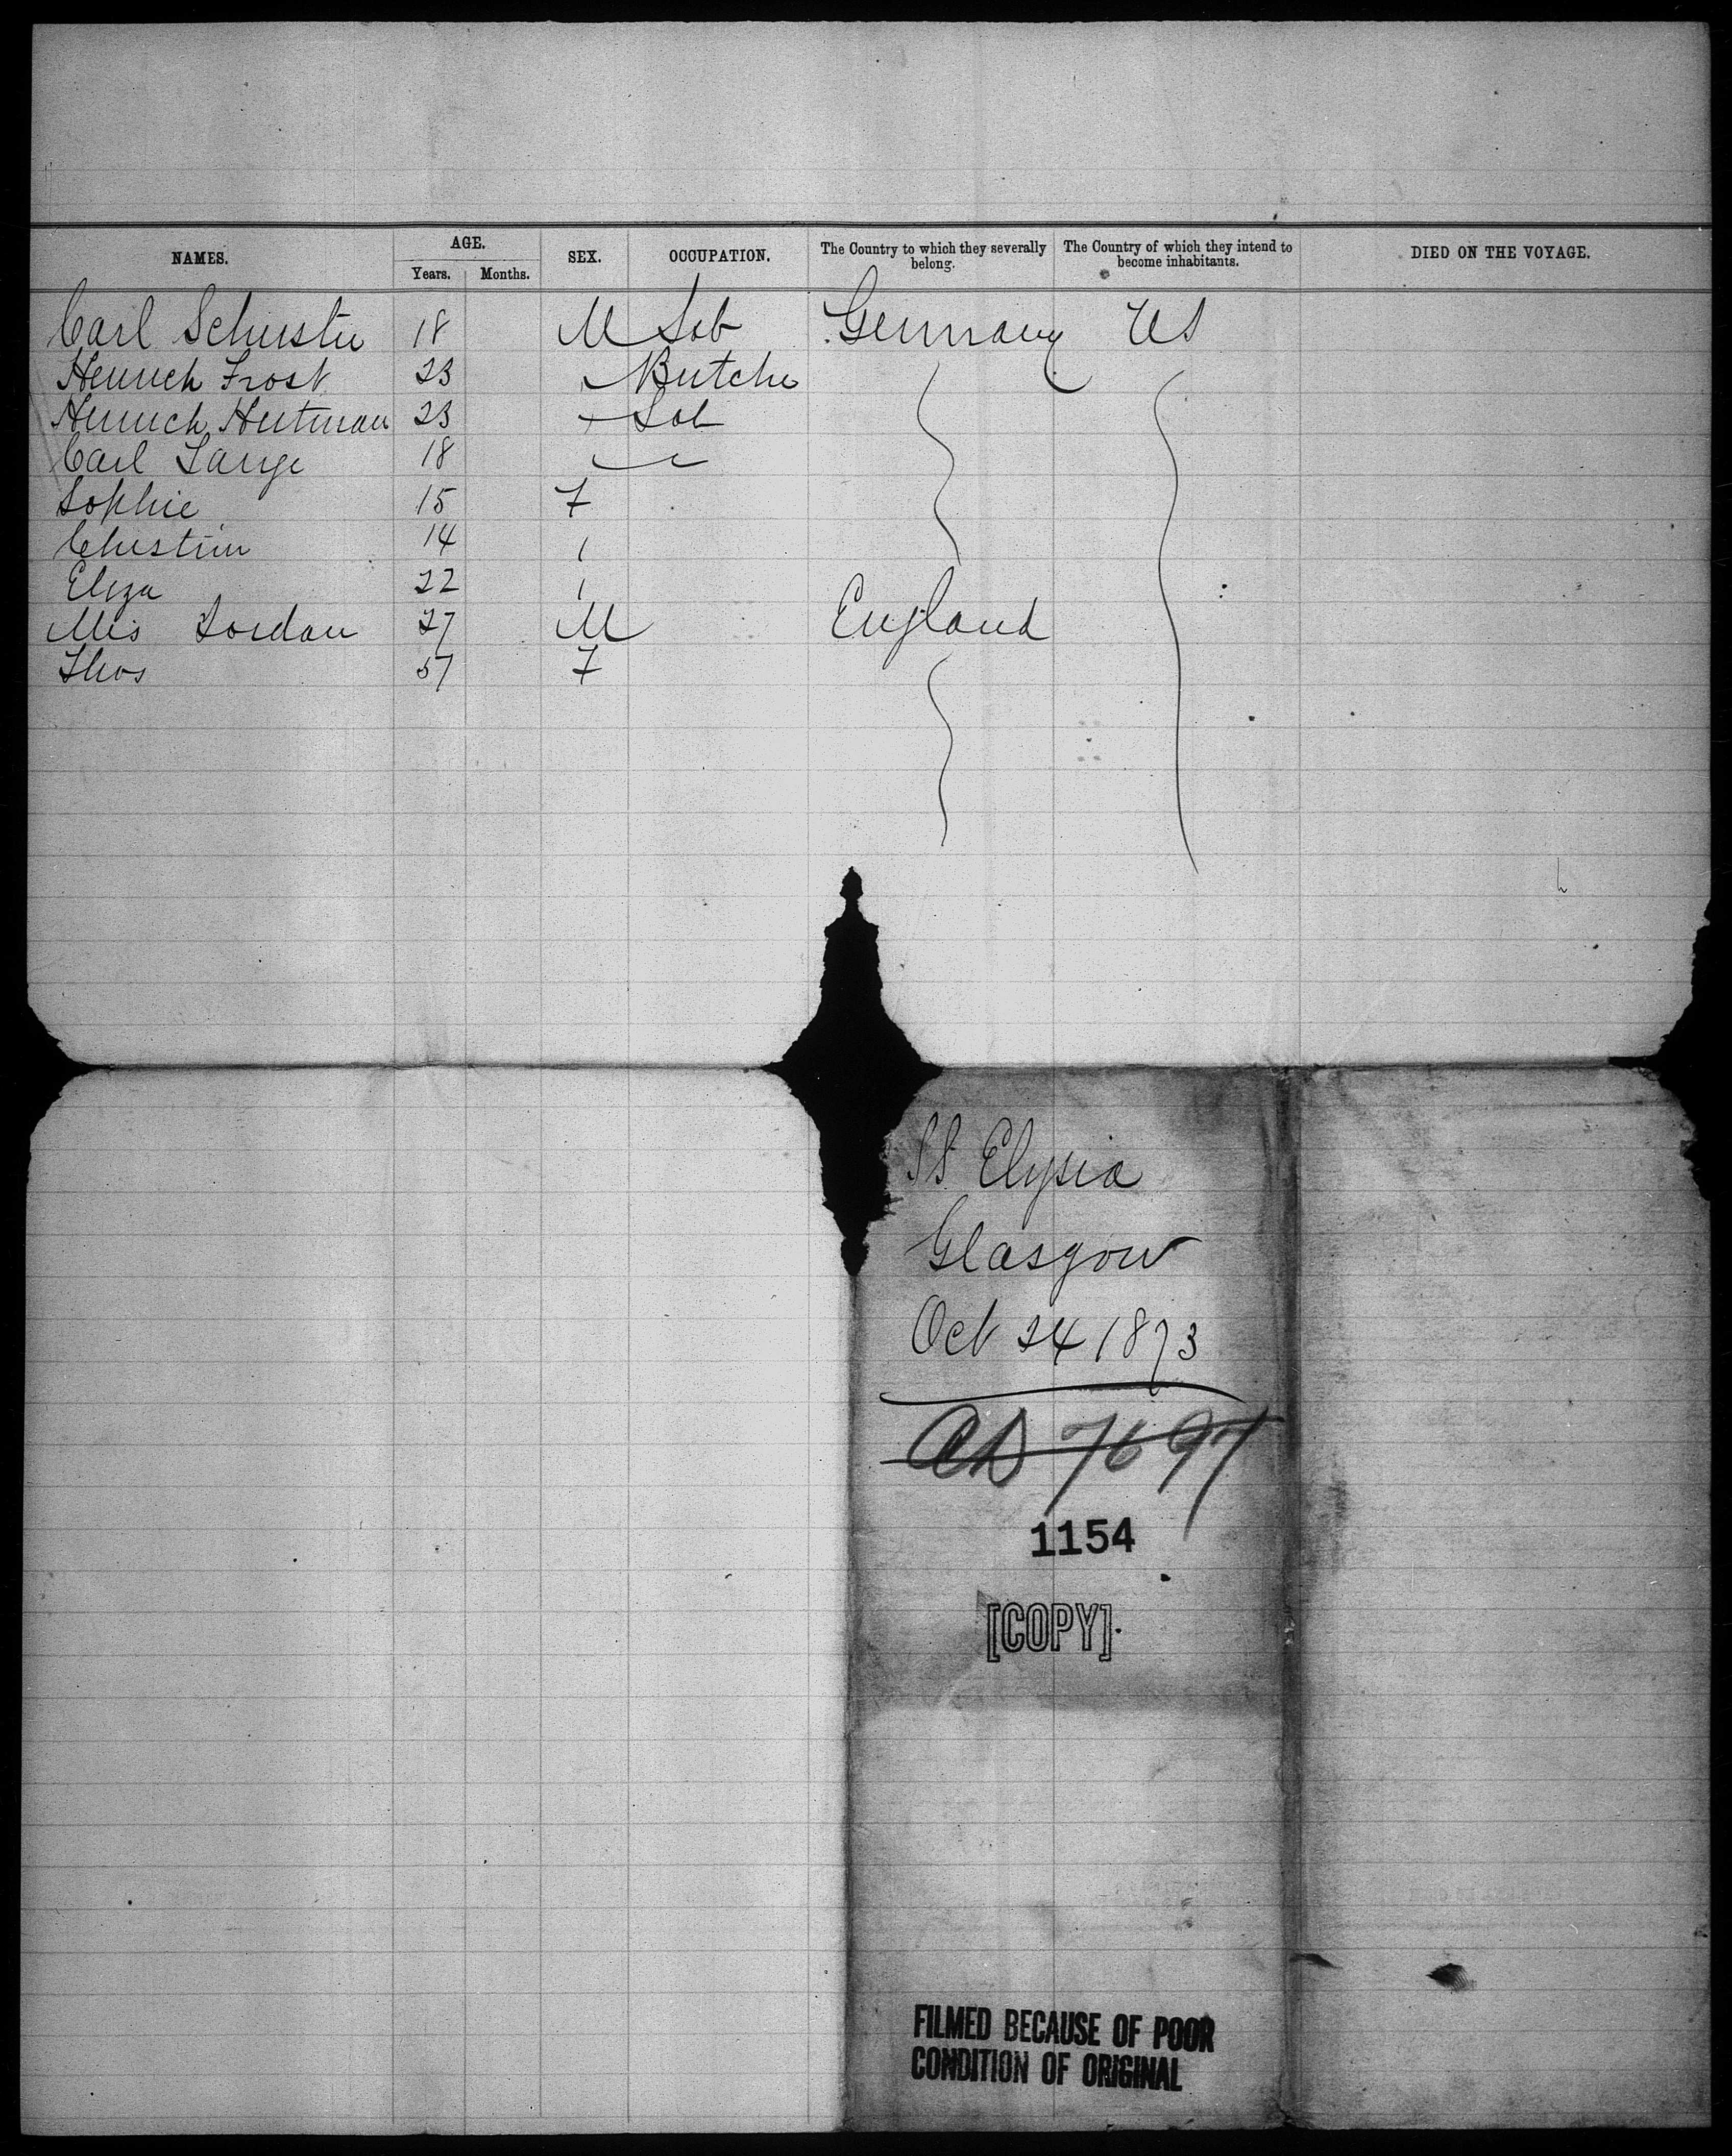 NAMES. AGE. SEX. OCCUPATION. The Country to which they severally belong. The Country of which they intend to become inhabitants. DIED ON THE VOYAGE.
Years. Months.
Carl Schuster 18 M Lab Germany US
Heinrich Frost 23 Butcher
Heinrich 23 Lab
Carl Lange 18
Sophie 15 F
Christin 14
Eliza 22
Mrs Jordan 27 M England
Thos 57 F
SS Elysia
Glasgow
Oct 24 1873
7697
1154
[COPY]
FILMED BECAUSE OF POOR
CONDITION OF ORIGINAL